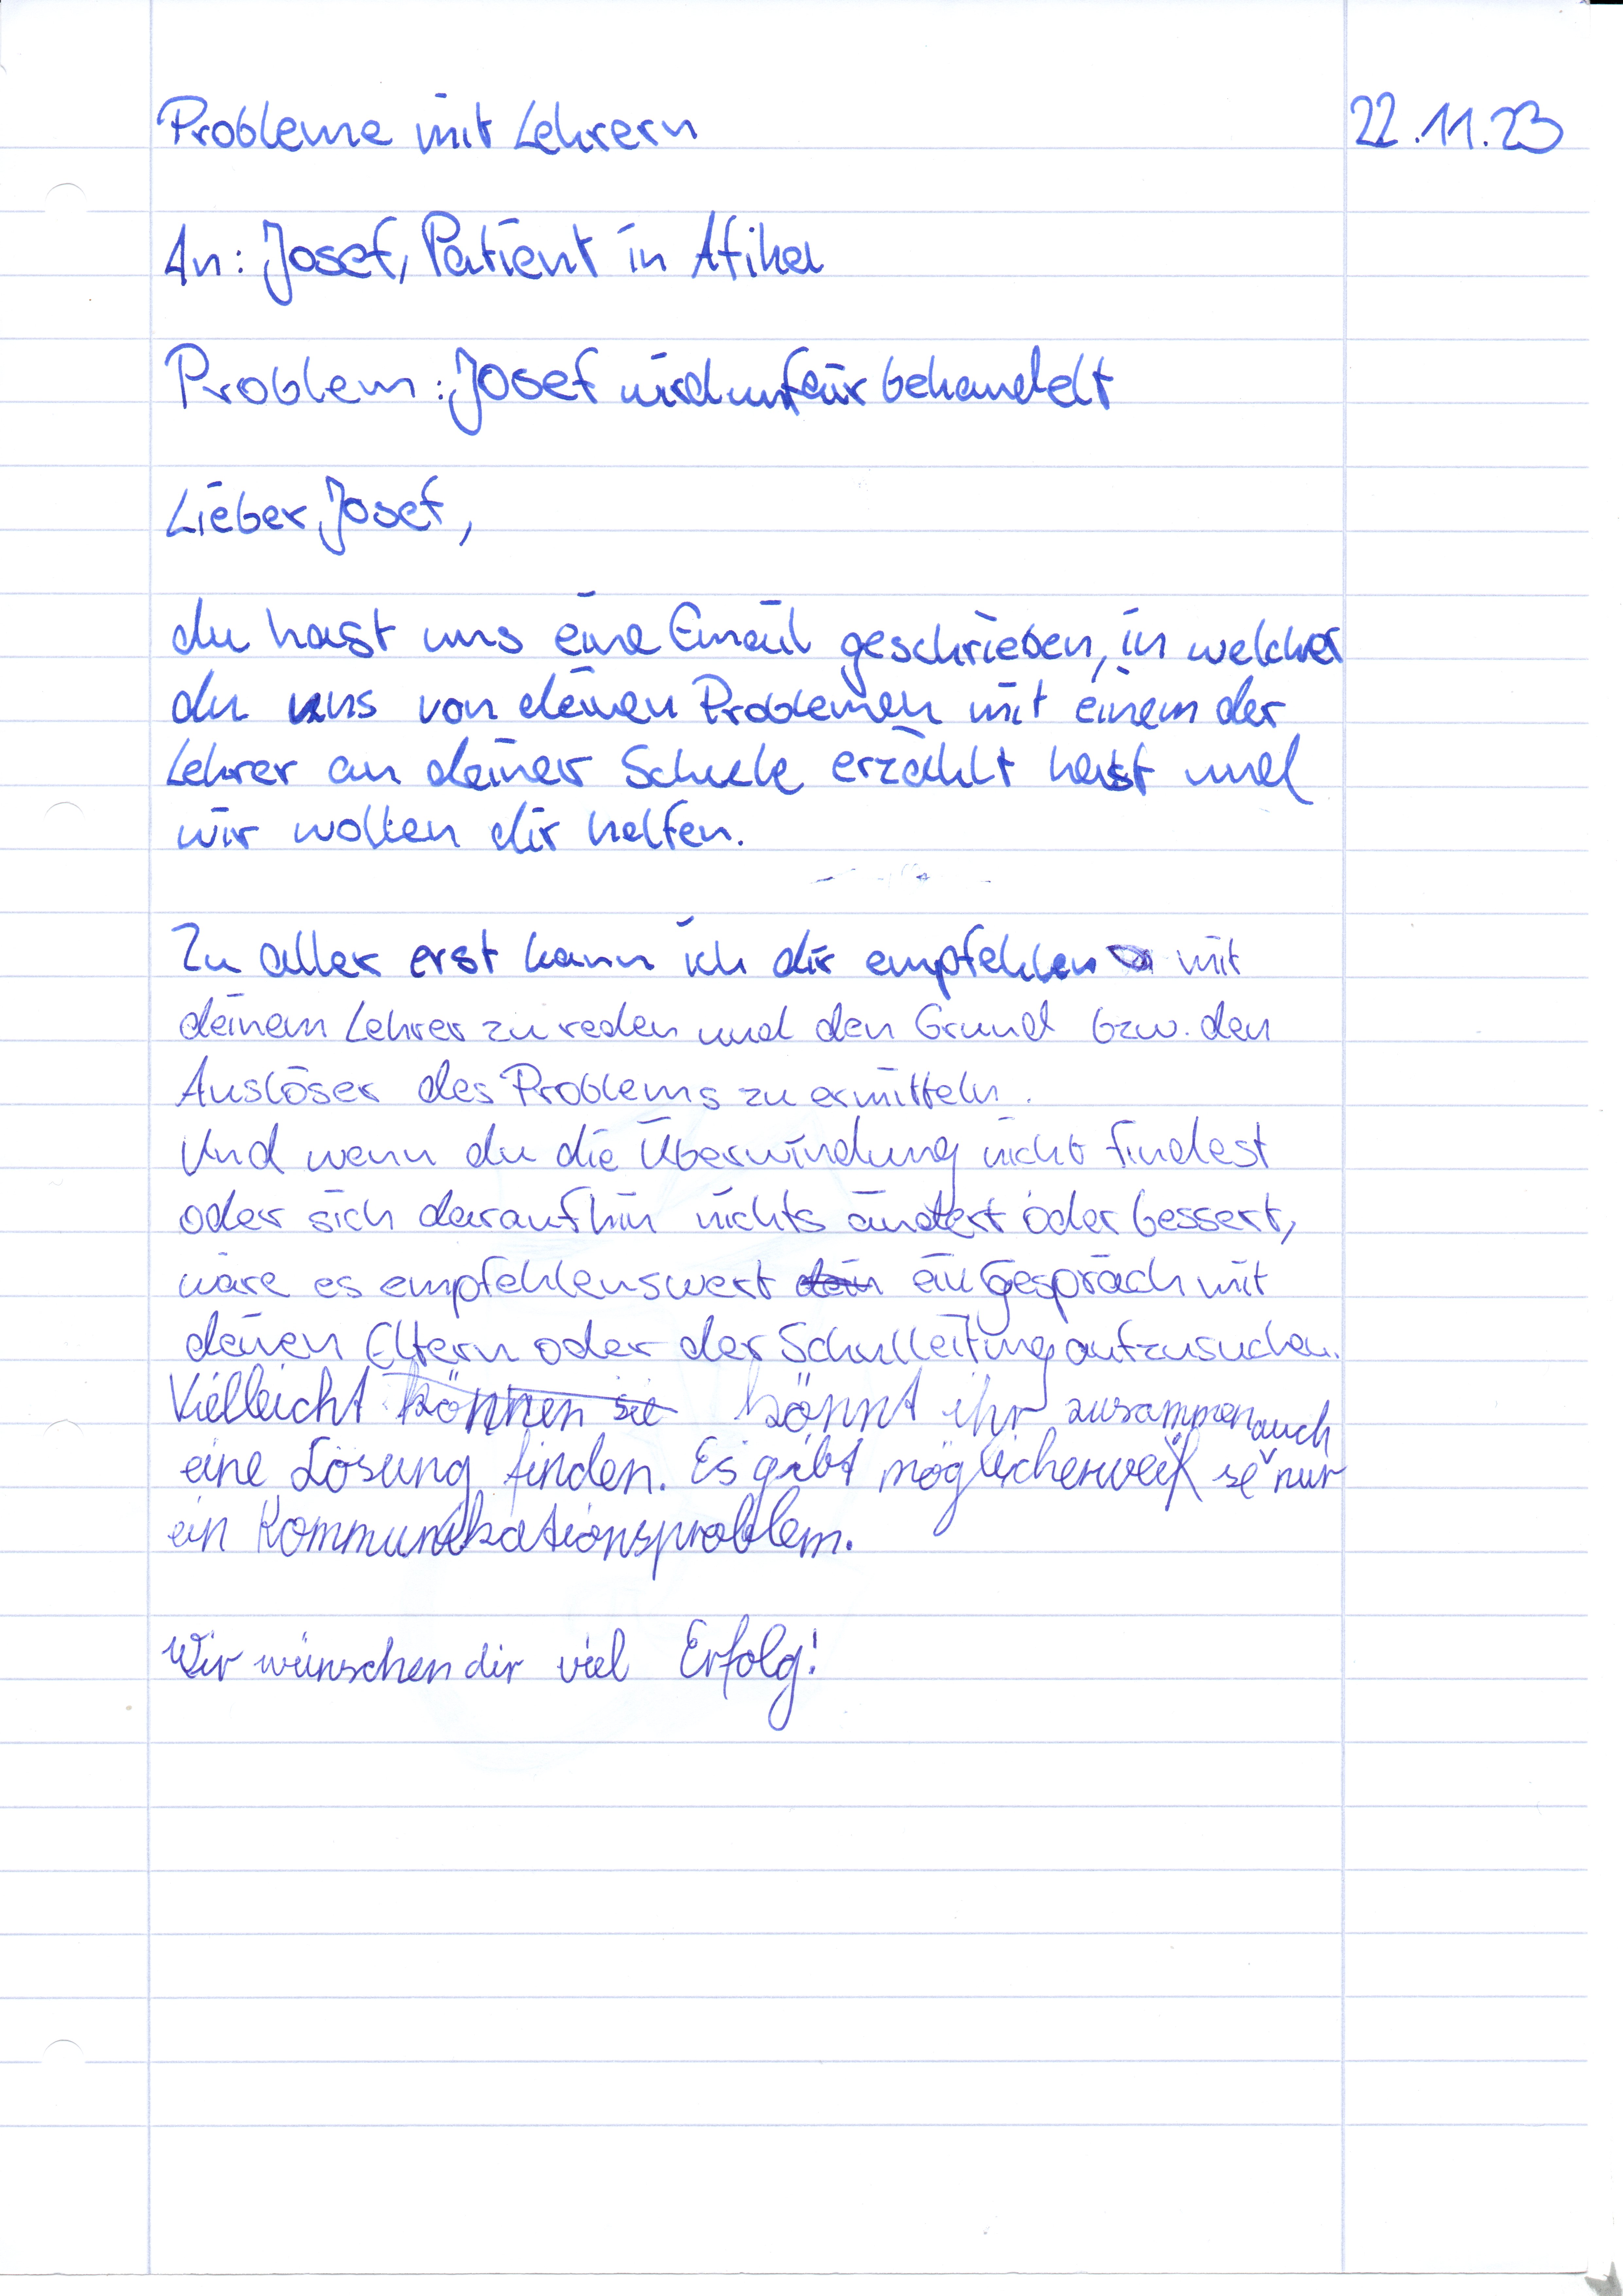 Probleme mit Lehrern 22.11.23
An: Josef, Patient in Afika
Problem: Josef wird unfair behandelt
Lieber Josef,
du hast uns eine Email geschrieben, in welcher
du uns von deinen Problemen mit einem der
Lehrer an deiner Schule erzählt hast und
wir wollen dir helfen.
Zu aller erst kann ich dir empfehlen mit
deinem Lehrer zu reden und den Grund bzw. den
Auslöser des Problems zu ermitteln.
Und wenn du die Überwindung nicht findest
oder sich daraufhin nichts ändert oder bessert,
wäre es empfehlenswert dein ein Gespräch mit
deinen Eltern oder der Schulleitung aufzusuchen.
Vielleicht können sie könnt ihr zusammen auch
eine Lösung finden. Es gibt möglicherweise nur
ein Kommunikationsproblem.
Wir wünschen dir viel Erfolg!